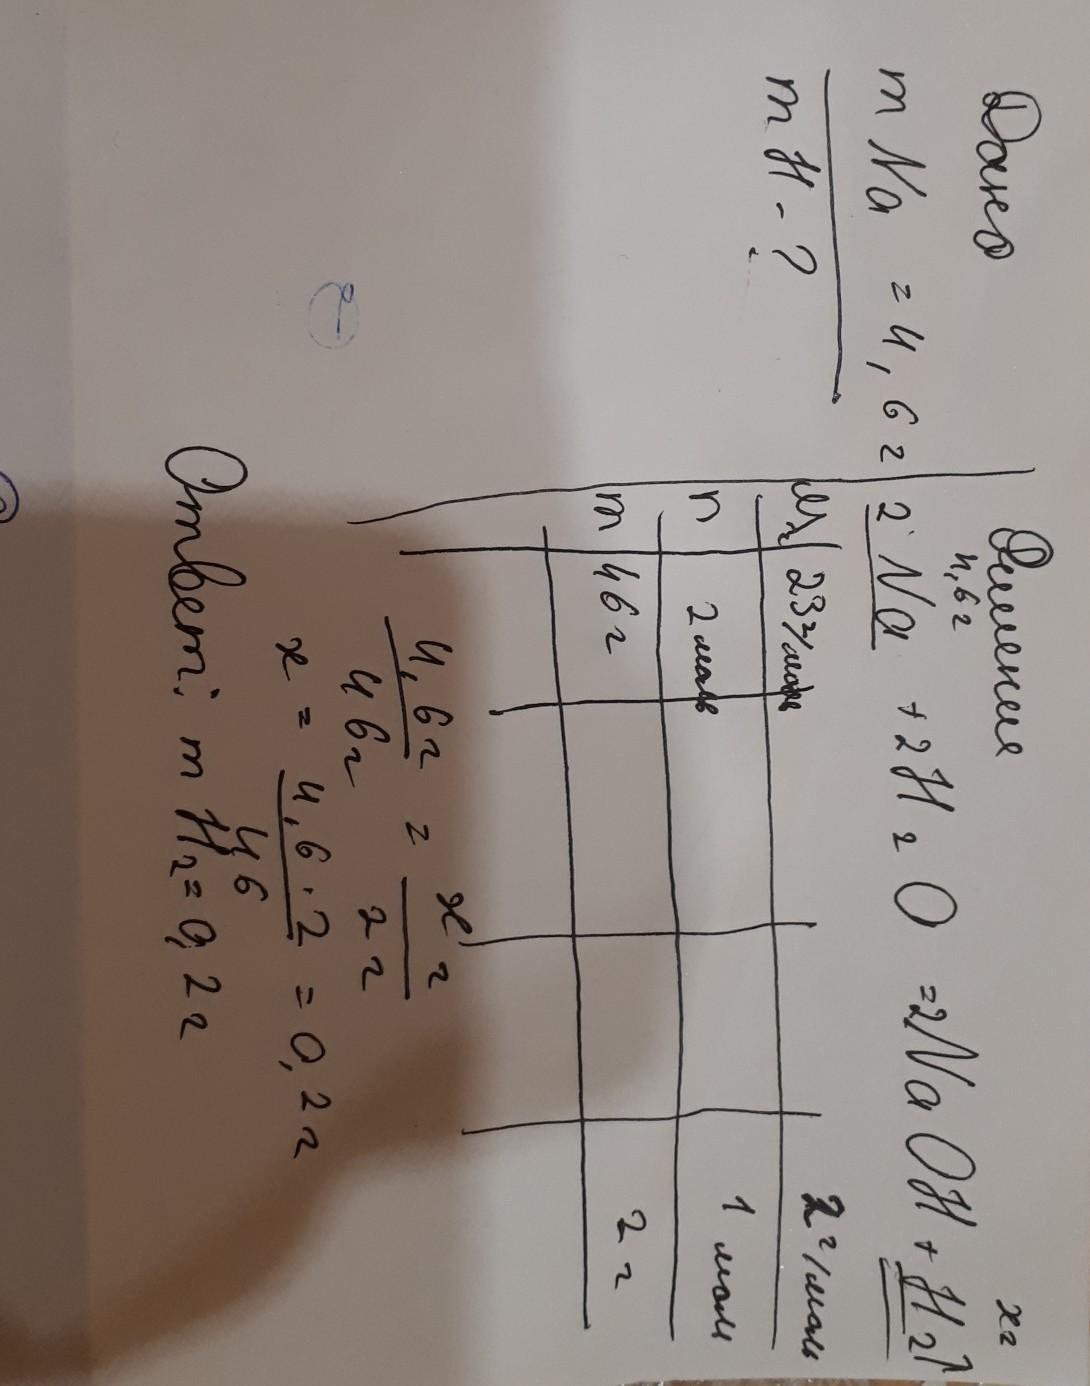 Дано
m Na = 4,6 г
m H - ?
Решение
4,6 г
x г
2 Na + 2H2O = 2NaOH + H2↑
Mr 23 г/моль 2 г/моль
n 2 моль 1 моль
m 46 г 2 г
4,6 г = x г
46 г 2 г
x = 4,6 · 2 = 0,2 г
46
Ответ: m H2 = 0,2 г